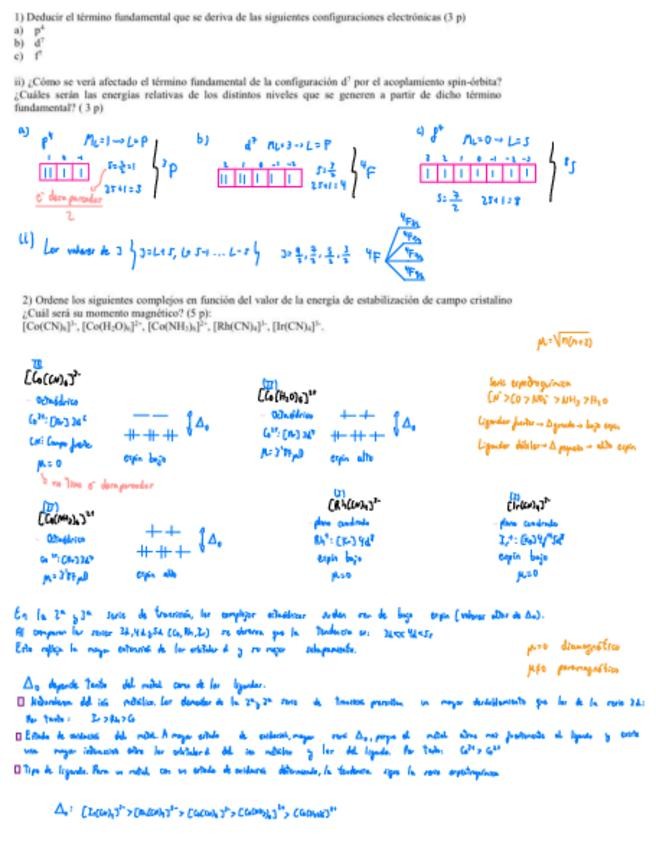 1) Deducir el término fundamental que se deriva de las siguientes configuraciones electrónicas (3 p)
a) p⁴
b) d⁷
c) f⁷
ii) ¿Cómo se verá afectado el término fundamental de la configuración d⁷ por el acoplamiento spin-órbita?
¿Cuáles serán las energías relativas de los distintos niveles que se generen a partir de dicho término
fundamental? ( 3 p)
a) p⁴ ML=1→L=P
1 0 -1
S=2/2=1
2S+1=3
³P
e⁻ desapareados
2
b) d⁷ ML=3→L=F
2 1 0 -1 -2
S=3/2
2S+1=4
⁴F
c) f⁷ ML=0→L=S
3 2 1 0 -1 -2 -3
S=7/2 2S+1=8
⁸S
ii) Los valores de J } J=L+S, L+S-1 ... L-S } J=9/2, 7/2, 5/2, 3/2 ⁴F
2) Ordene los siguientes complejos en función del valor de la energía de estabilización de campo cristalino
¿Cuál será su momento magnético? (5 p):
[Co(CN)₆]³⁻, [Co(H₂O)₆]²⁺, [Co(NH₃)₆]²⁺, [Rh(CN)₄]³⁻, [Ir(CN)₄]³⁻.
μ=√n(n+2)
Serie espectroquímica
CN⁻>CO>NO₂⁻>NH₃>H₂O
Ligandos fuertes→Δ grande→bajo espín
Ligandos débiles→Δ pequeño→alto espín
[Co(CN)₆]³⁻
Octaédrico
Co³⁺: [Ar] 3d⁶
CN: Campo fuerte
μ=0
no tiene e⁻ desapareados
Δ₀
espín bajo
[Co(H₂O)₆]²⁺
Octaédrico
Co²⁺: [Ar] 3d⁷
μ=3'87 μB
Δ₀
espín alto
[Co(NH₃)₆]²⁺
Octaédrico
Co²⁺: [Ar] 3d⁷
μ=3'87 μB
Δ₀
espín alto
[Rh(CN)₄]³⁻
plano cuadrado
Rh⁺: [Kr] 4d⁸
espín bajo
μ=0
[Ir(CN)₄]³⁻
plano cuadrado
Ir⁺: [Xe] 4f¹⁴5d⁸
espín bajo
μ=0
En la 2ª y 3ª serie de transición, los complejos octaédricos suelen ser de bajo espín (valores altos de Δ₀).
Al comparar las series 3d, 4d y 5d (Co, Rh, Ir) se observa que la tendencia es: 3d<<4d<5d
Esto refleja la mayor extensión de los orbitales d y su mejor solapamiento.
μ=0 diamagnético
μ≠0 paramagnético
Δ₀ depende tanto del metal como de los ligandos.
Naturaleza del ión metálico. Los elementos de la 2ª y 3ª serie de transición presentan un mayor desdoblamiento que los de la serie 3d.
Por tanto: Ir>Rh>Co
Estado de oxidación del metal. A mayor estado de oxidación, mayor será Δ₀, porque el metal atrae más fuertemente al ligando y existe
una mayor interacción entre los orbitales d del ion metálico y los del ligando. Por tanto: Co³⁺>Co²⁺
Tipo de ligando. Para un metal con un estado de oxidación determinado, la tendencia sigue la serie espectroquímica
Δ₀: [Ir(CN)₄]³⁻>[Rh(CN)₄]³⁻>[Co(CN)₆]³⁻>[Co(NH₃)₆]²⁺>[Co(H₂O)₆]²⁺